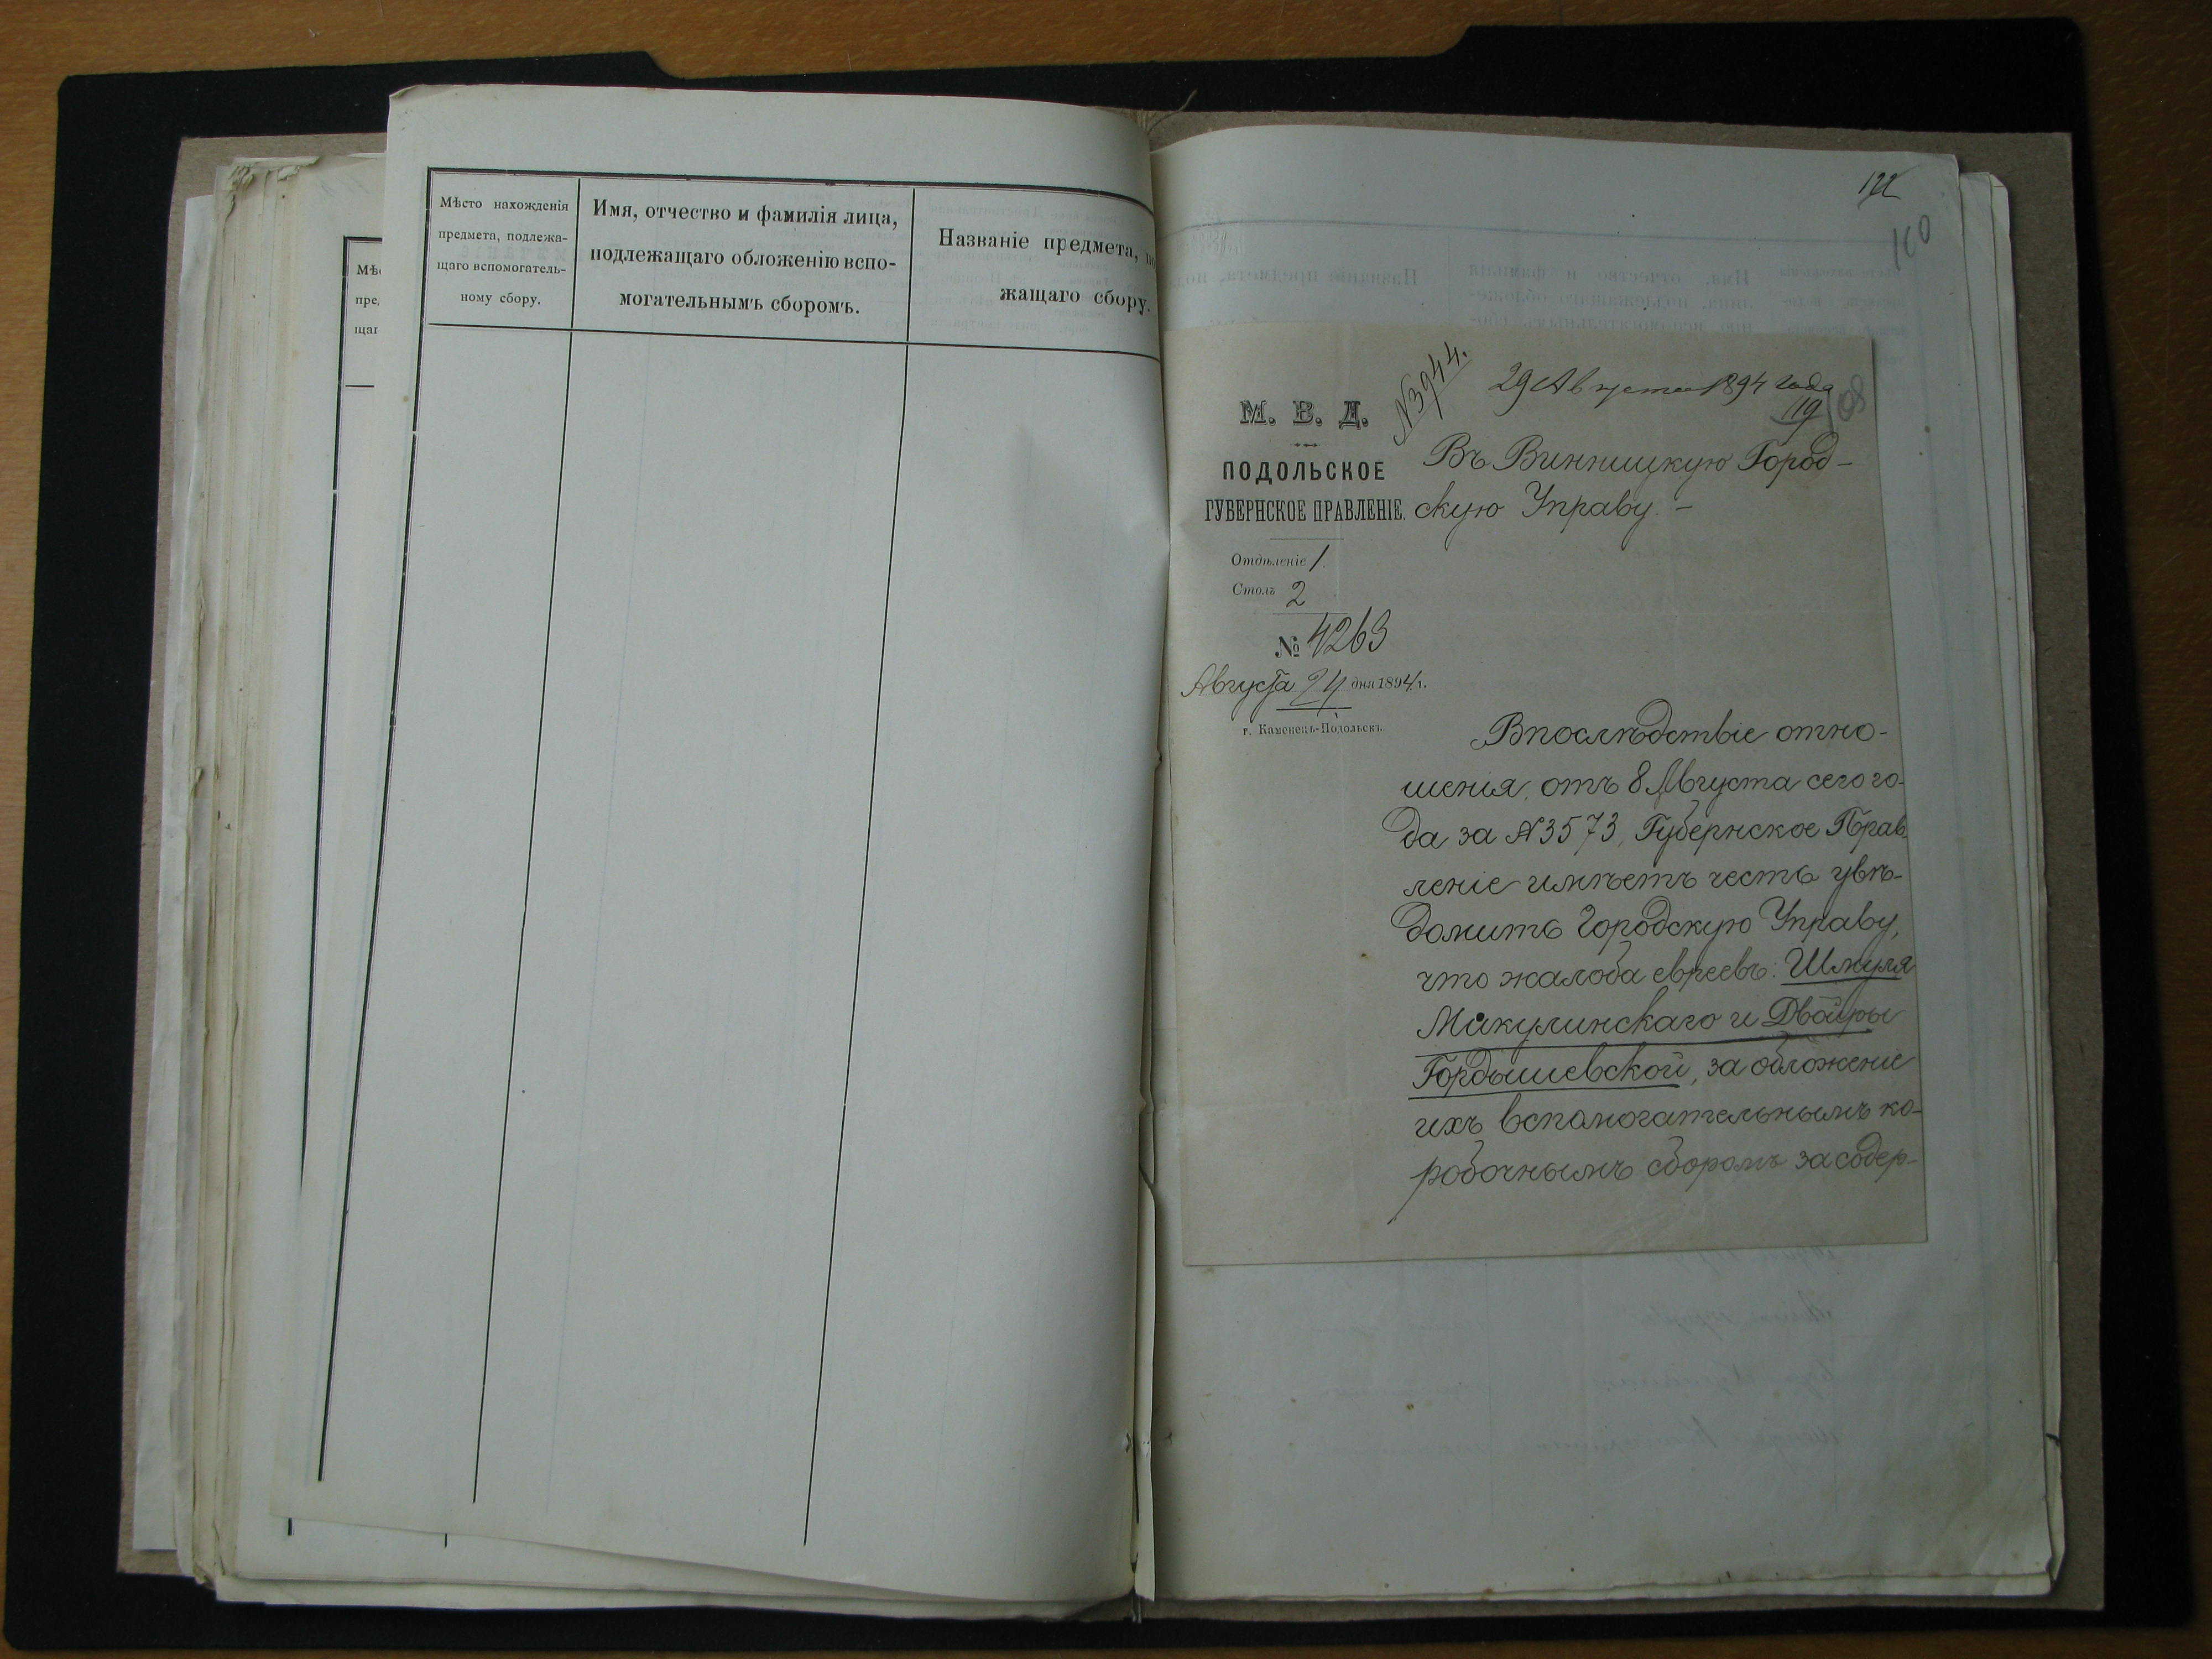 Мѣсто нахожденія
предмета, подлежа-
щаго вспомогатель-
ному сбору.
Имя, отчество и фамилія лица,
подлежащаго обложенію вспо-
могательнымъ сборомъ.
Названіе предмета,
жащаго сбору.
160
№ 3944.
29 Августа 1894 года
119
М. В. Д.
ПОДОЛЬСКОЕ
ГУБЕРНСКОЕ ПРАВЛЕНІЕ.
Отдѣленіе 1.
Столъ 2
№ 4263
Августа 24 дня 1894 г.
г. Каменецъ-Подольскъ.
Въ Винницкую Город-
скую Управу. –
Впослѣдствіе отно-
шенія, отъ 8 Августа сего го-
да за № 3573, Губернское Прав-
леніе имѣетъ честь увѣ-
домить Городскую Управу,
что жалоба евреевъ: Шмуля
Микулинскаго и Двойры
Гордышевской, за обложеніе
ихъ вспомогательнымъ ко-
робочнымъ сборомъ за содер-